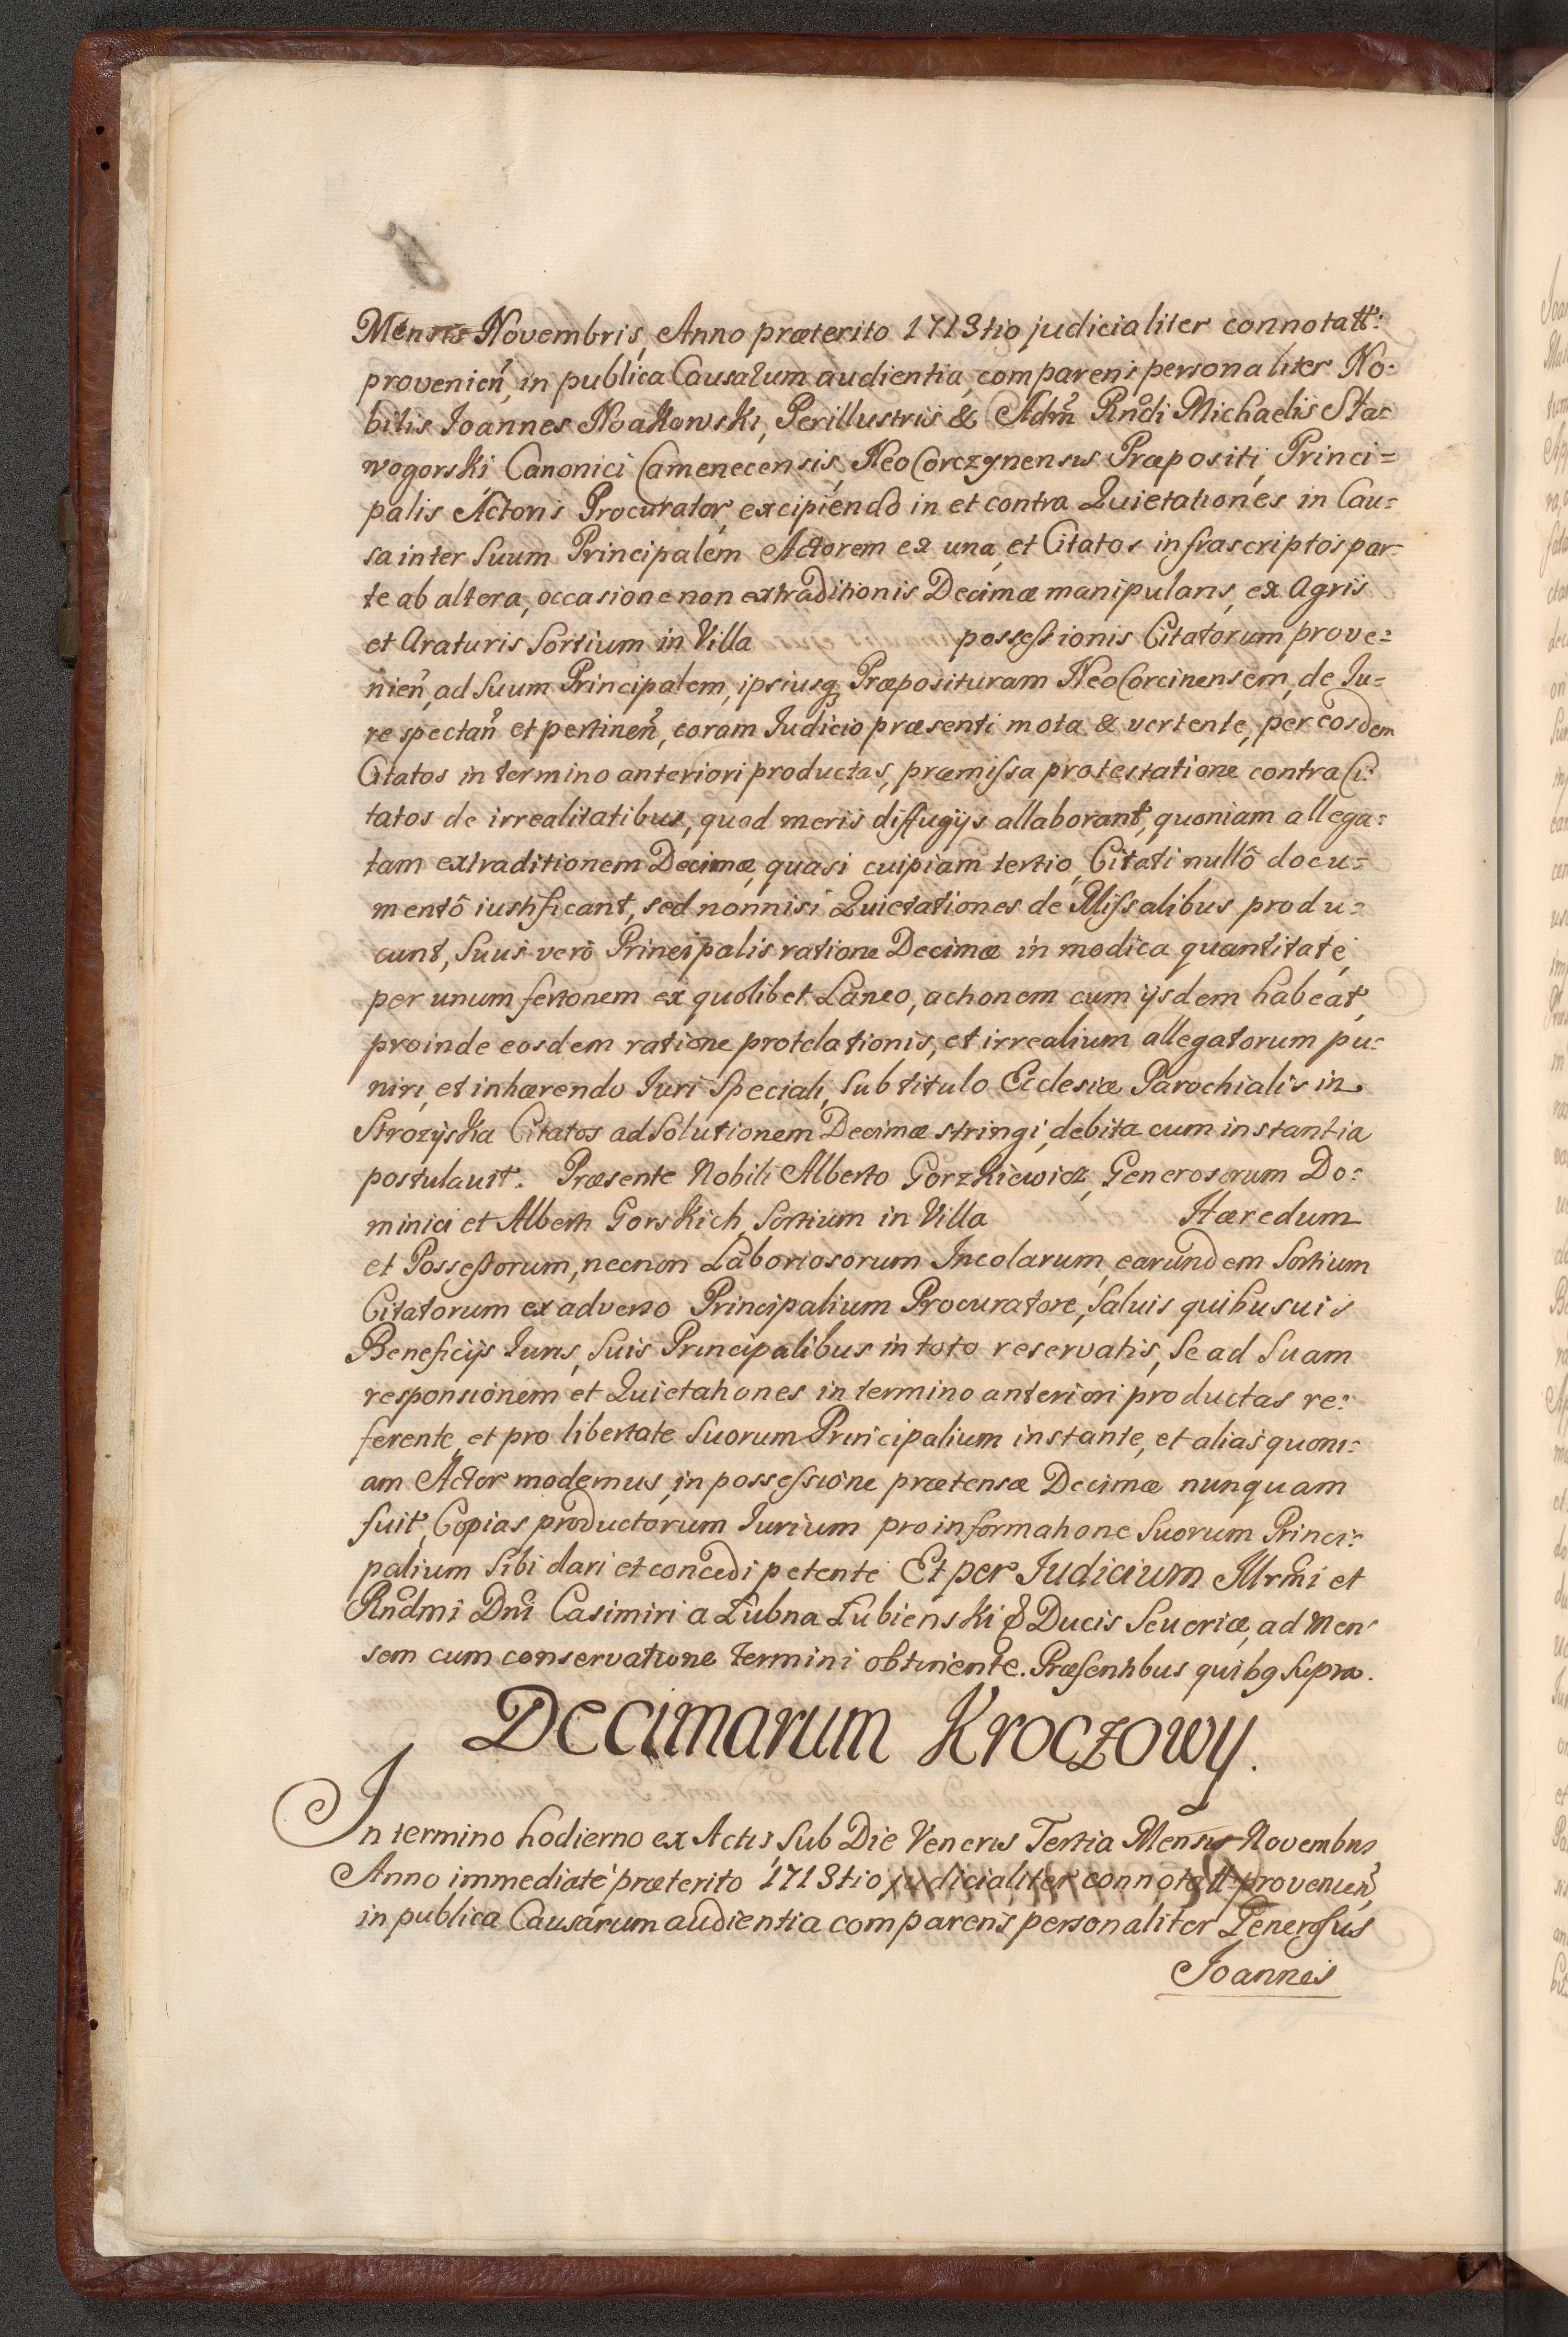 Mensis Novembris, Anno præterito 1713tio judicialiter connotatt:
provenień, in publica Causarum audientia, comparens personaliter No:
bilis Joannes Noakowski, Perillustris & Adm̃ Rńdi Michaelis Sta=
wogorski Canonici Camenecensis, NeoCorczynensis Præpositi, Princi=
palis Actoris Procurator, excipiendo in et contra Quietationes in Cau=
sa inter Suum Principalem Actorem ex una, et Citatos infrascriptos par=
te ab altera, occasione non extraditionis Decimæ manipularis, ex Agris
et Araturis Sortium in Villa possessionis Citatorum prove=
nień, ad Suum Principalem, ipsiusq; Præposituram NeoCorcinensem, de Ju=
re spectań et pertineń, coram Judicio præsenti mota & vertente, per eosdem
Citatos in termino anteriori productas, præmissa protestatione contra Ci:
tatos de irrealitatibus, quod meris diffugijs allaborant, quoniam allega:
tam extraditionem Decimæ, quasi cuipiam tertio, Citati nullô docu=
mentô iustificant, sed nonnisi Quietationes de Missalibus produ=
cunt, Suus verò Principalis ratione Decimæ in modica quantitate
per unum fertonem ex quolibet Laneo, actionem cum ijsdem habeat,
proinde eosdem ratione protelationis, et irrealium allegatorum pu=
niri, et inhærendo Juri Speciali, Sub titulo Ecclesiæ Parochialis in
Strozyska Citatos ad Solutionem Decimæ stringi, debita cum instantia
postulauit. Præsente Nobili Alberto Gorzkiewicz, Generosorum Do:
minici et Alberti Gorskich, Sortium in Villa Hæredum
et Possessorum, necnon Laboriosorum Incolarum, earundem Sortium
Citatorum ex adverso Principalium Procuratore, Saluis quibusuis
Beneficijs Juris, Suis Principalibus in toto reservatis, Se ad Suam
responsionem et Quietationes in termino anteriori productas re:
ferente, et pro libertate Suorum Principalium instante, et alias quoni:
am Actor modernus, in possessione prætensæ Decimæ nunquam
fuit, Copias productorum Jurium pro informatione Suorum Princi:
palium Sibi dari et concedi petente Et per Judicium Illrm̃i et
Rńdmi Dńi Casimiri a Łubna Łubienski & Ducis Seueriæ, ad Men
sem cum conservatione termini obtinente. Præsentibus quibg Supra.
Decimarum Kroczowy.
In termino hodierno ex Actis Sub Die Veneris Tertia Mensis Novembris
Anno immediatè præterito 1713tio judicialiter connotatt provenień,
in publica Causarum audientia comparens personaliter Generosus
Joannes